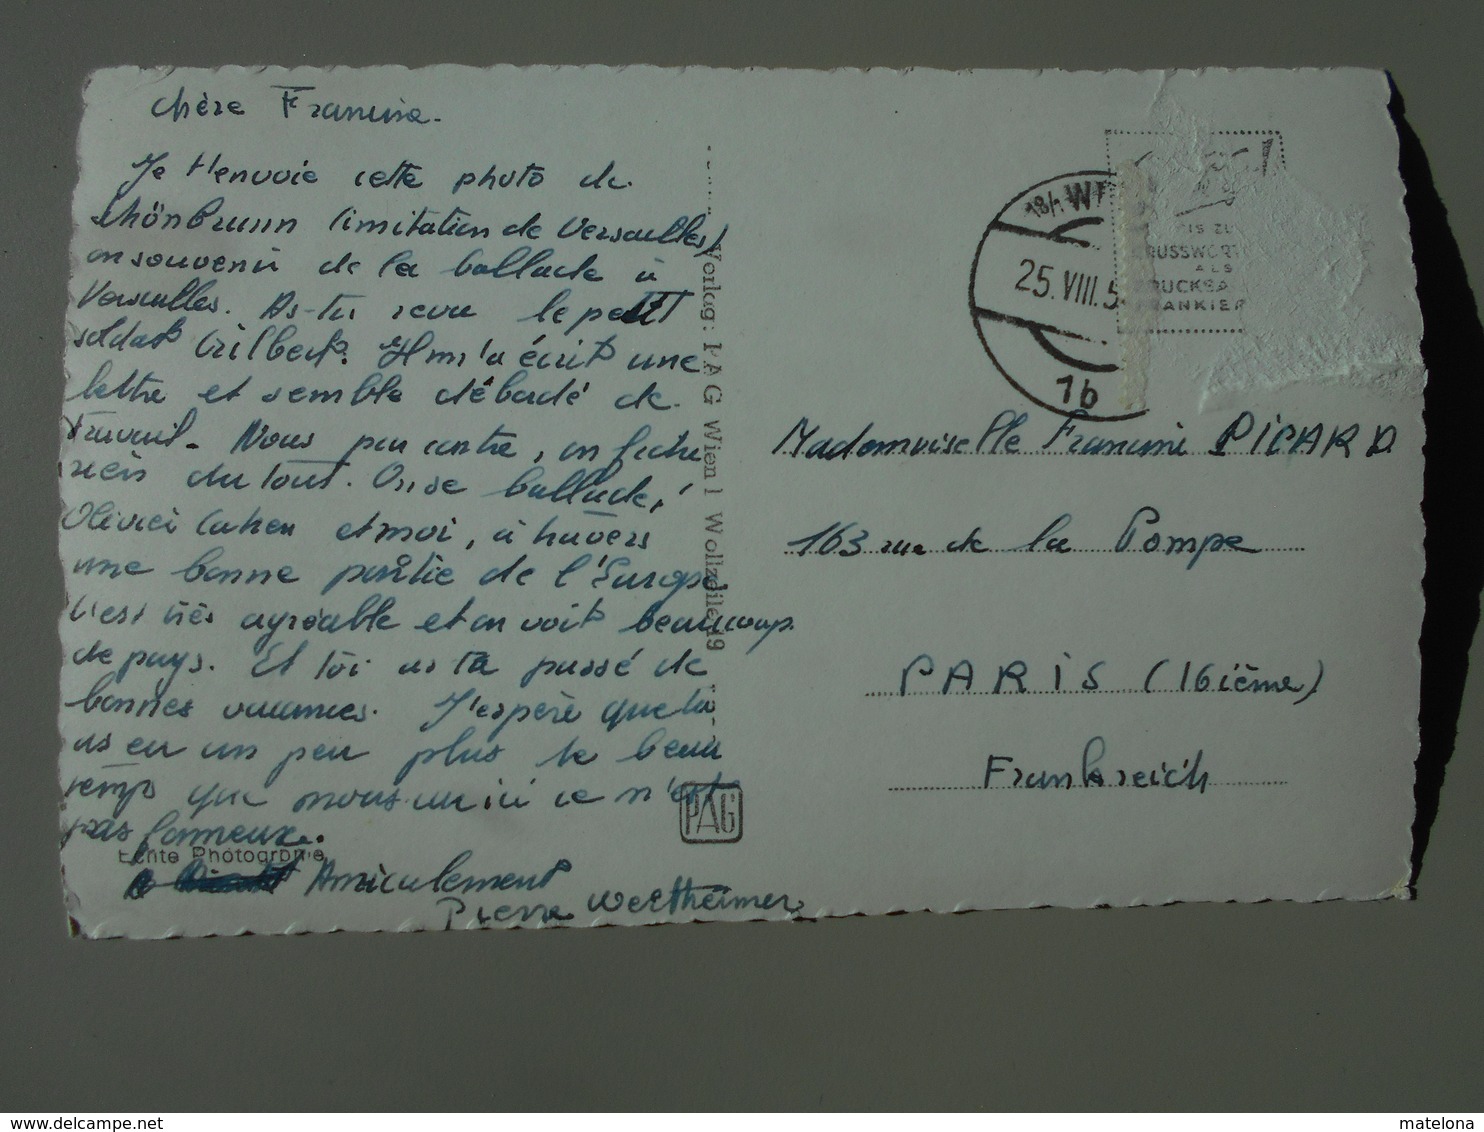 chère Francine.
Je t'envoie cette photo de
Schönbrunn (imitation de Versailles)
en souvenir de la ballade à
Versailles. As-tu revu le petit
soldat Gilbert? Il m'a écrit une
lettre et semble débordé de
travail. Nous par contre, on fiche
rien du tout. On se ballade,
Olivier Cahen et moi, à travers
une bonne partie de l'Europe
c'est très agréable et on voit beaucoup
de pays. Et toi as tu passé de
bonnes vacances. J'espère que tu
as eu un peu plus le beau
temps que nous car ici ce n'est
pas fameux.
Amicalement
Pierre Wertheimer
Echte Photographie
Verlag: PAG Wien I Wollzeile 19
PAG
18h WI
25.VIII.5
1b
BIS ZU
RUSSWORT
ALS
RUCKSA
RANKIER
Mademoiselle Francine PICARD
163 rue de la Pompe
PARIS (16ième)
Frankreich
www.delcampe.net
matelona